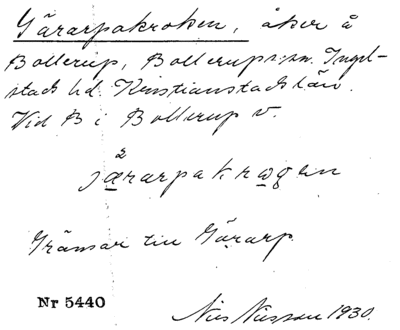 Gärarpakroken, åker å
Bollerup, Bollerups sn. Ingel-
stads hd. Kristianstads län.
Vid B i Bollerup v.
2
järarpakrogen
Gränsar till Gärarp.
Nr 5440
Nils Nilsson 1930.